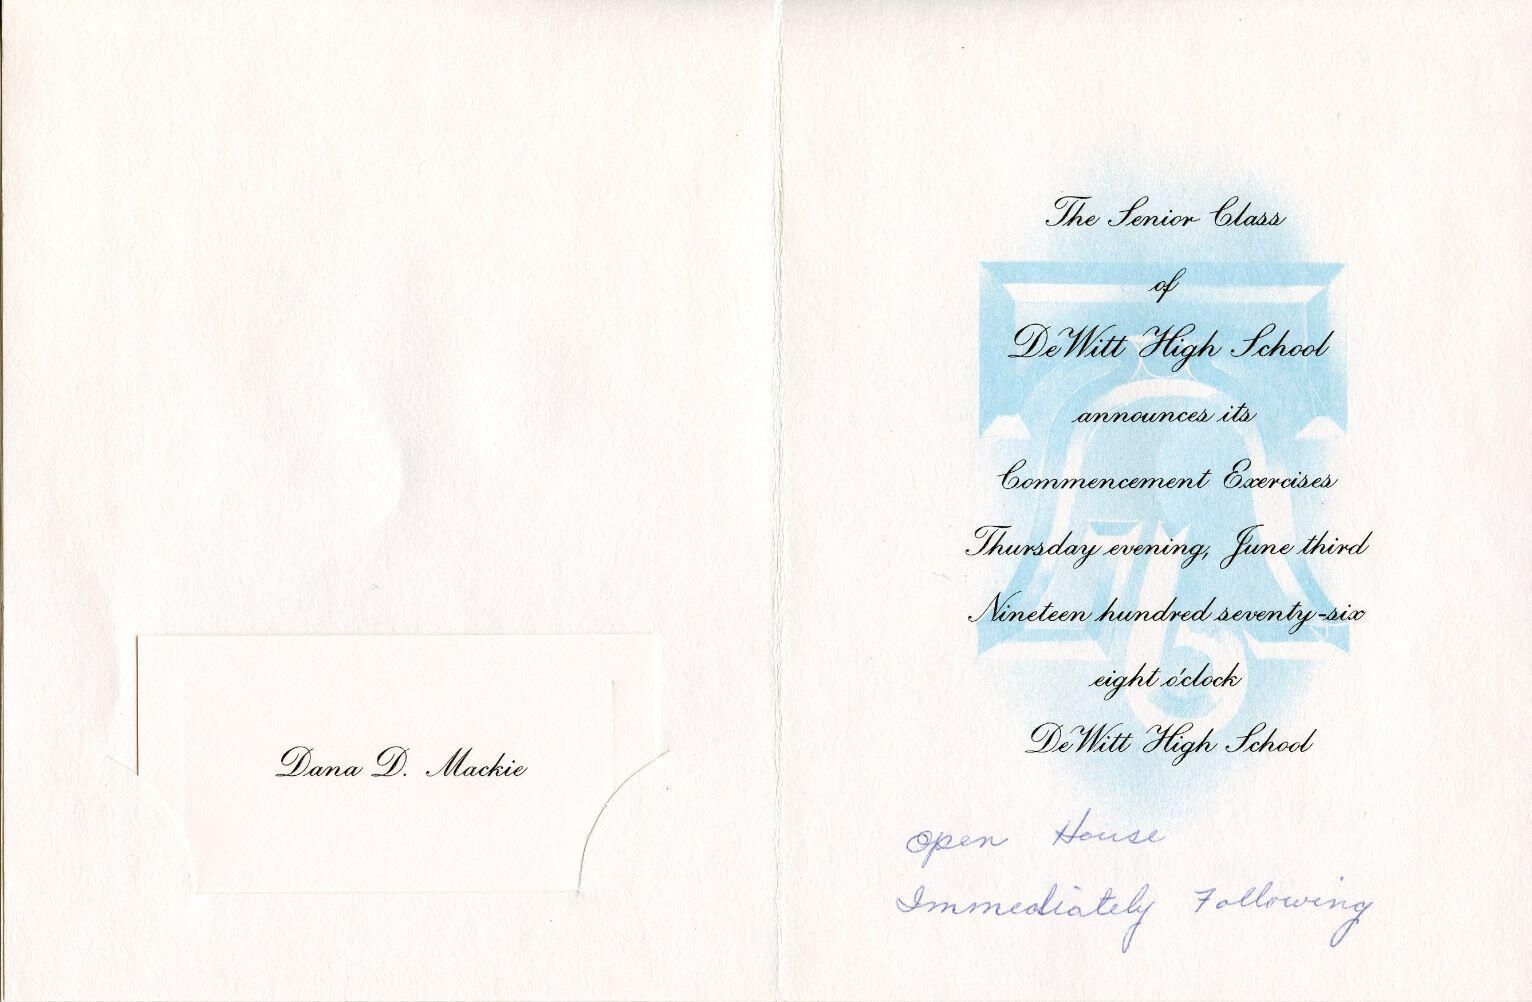 Dana D. Mackie
The Senior Class
of
DeWitt High School
announces its
Commencement Exercises
Thursday evening, June third
Nineteen hundred seventy-six
eight o'clock
DeWitt High School
76
Open House
Immediately Following